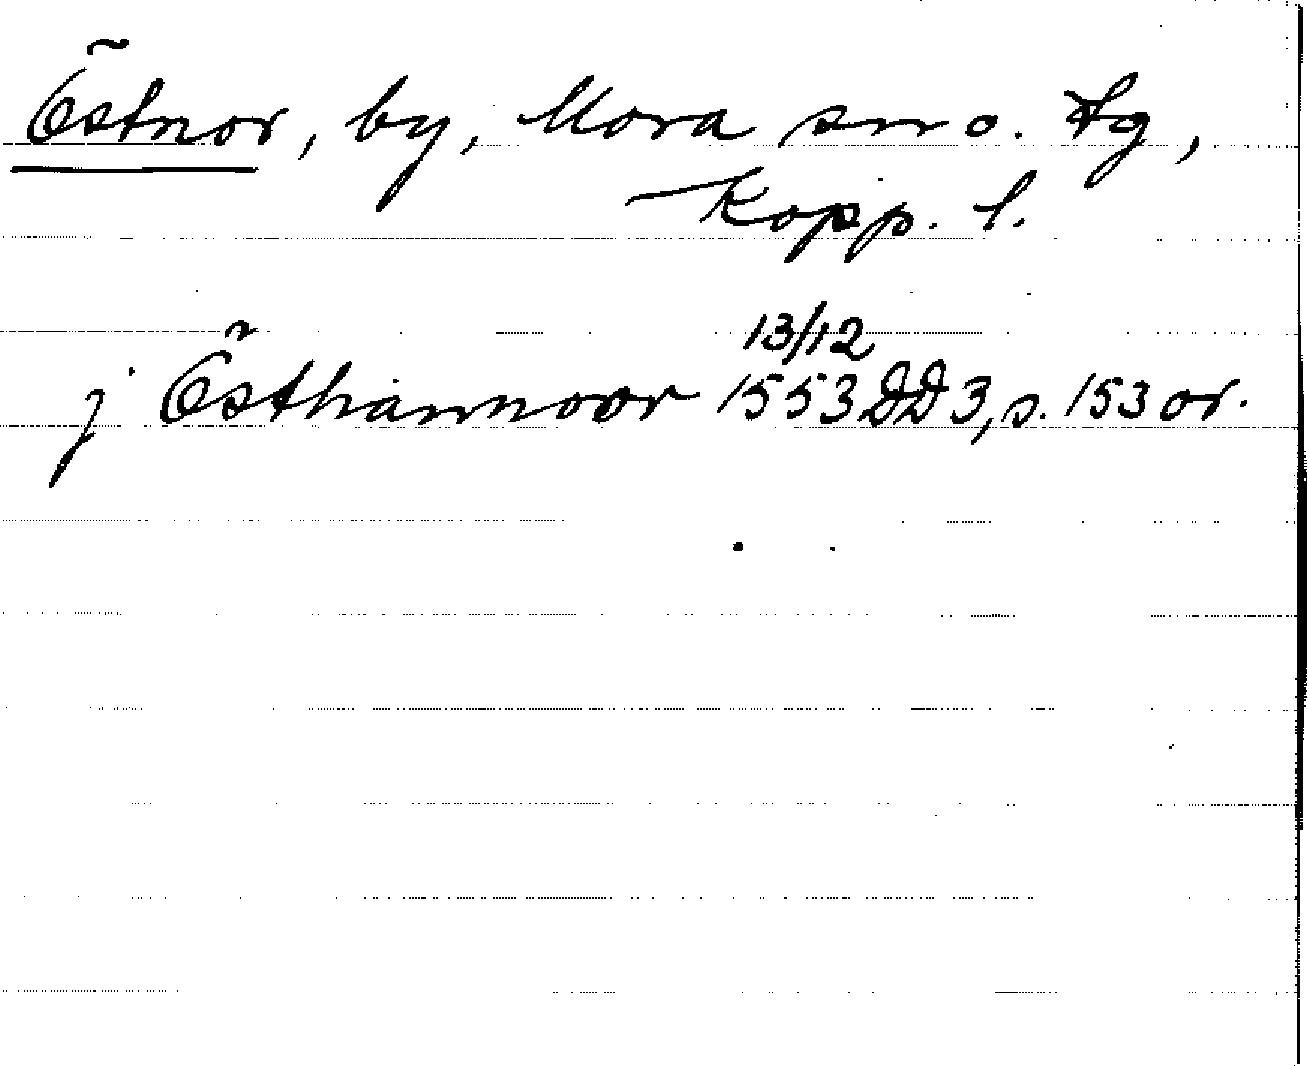 Östnor, by, Mora sn o. tg,
Kopp. l.
13/12
j Östhannoor 1553 DD 3, s. 153 or.